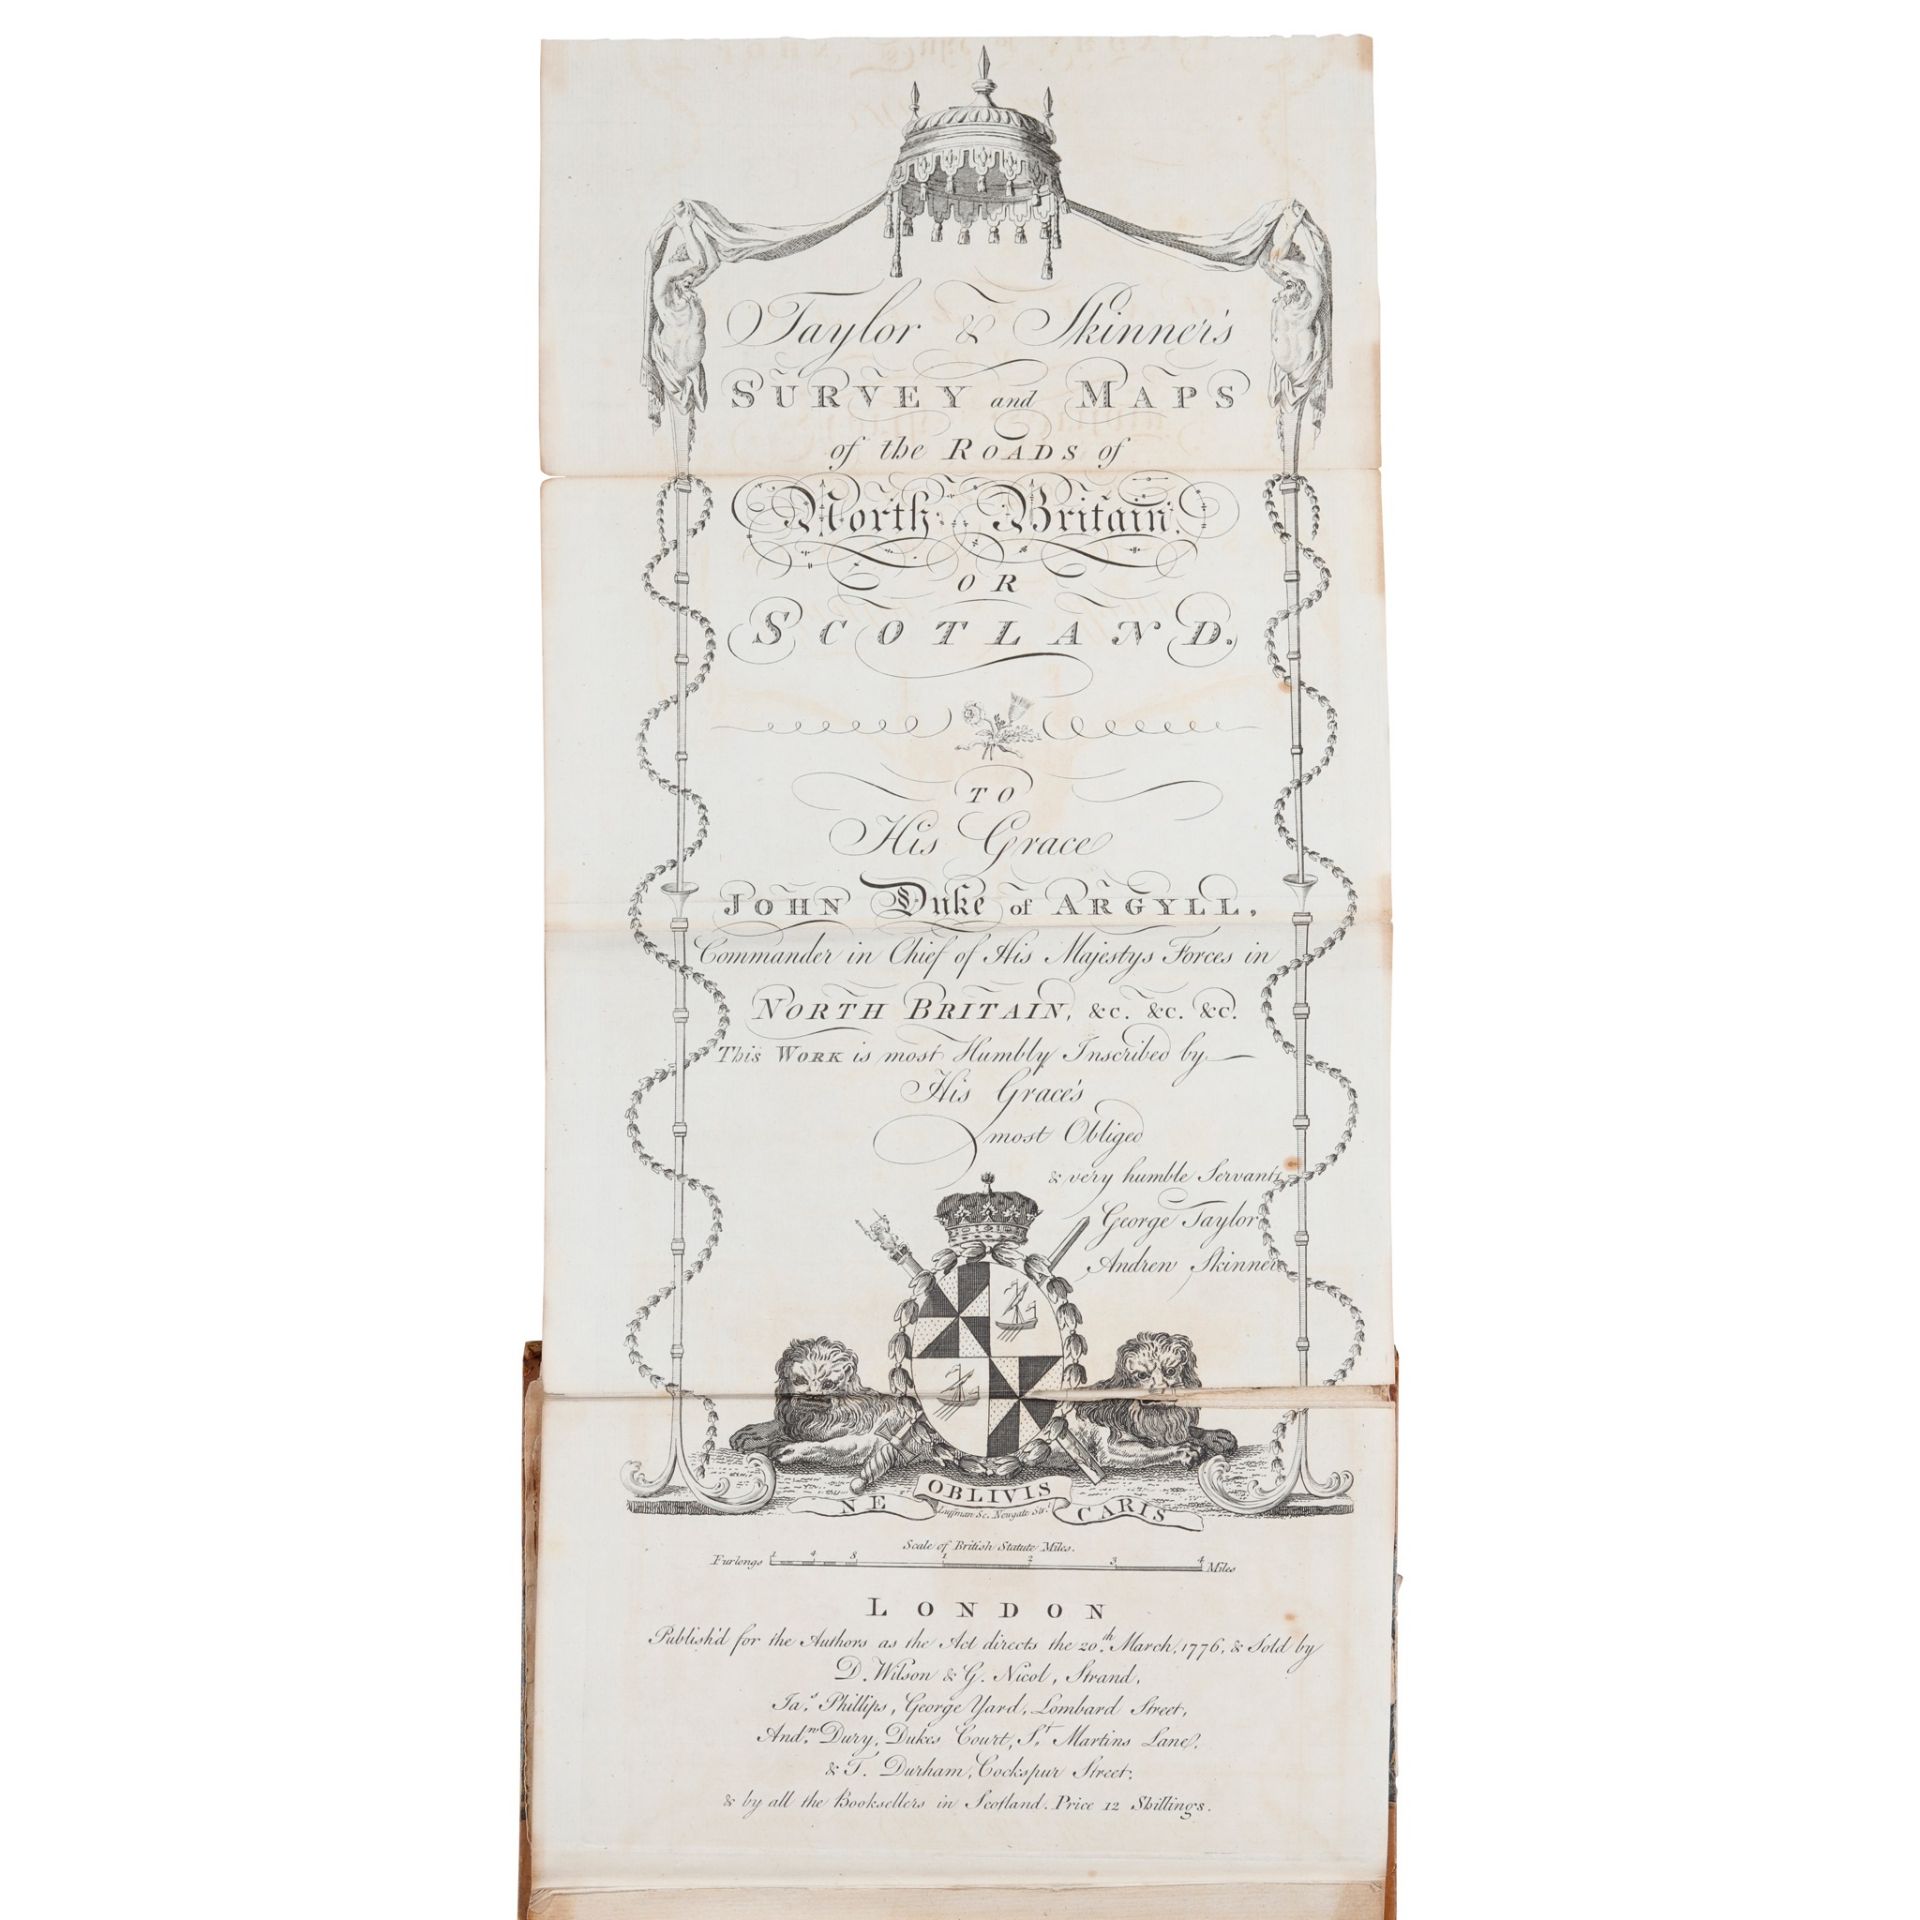 Taylor & Skinner's
SURVEY and MAPS
of the ROADS of
North Britain,
OR
SCOTLAND.
TO
His Grace
JOHN Duke of ARGYLL,
Commander in Chief of His Majestys Forces in
NORTH BRITAIN, &c. &c. &c.
This WORK is most Humbly Inscribed by
His Grace's
most Obliged
& very humble Servants
George Taylor
Andrew Skinner
NE OBLIVIS CARIS
Luffman Sc. Newgate Str.
Scale of British Statute Miles.
Furlongs 1 4 8 1 2 3 4 Miles
LONDON
Publish'd for the Authors as the Act directs the 20.th March, 1776, & Sold by
D. Wilson & G. Nicol, Strand,
Ja.s Phillips, George Yard, Lombard Street,
And.w Dury, Dukes Court, S.t Martins Lane,
& T. Durham, Cockspur Street,
& by all the Booksellers in Scotland. Price 12 Shillings.